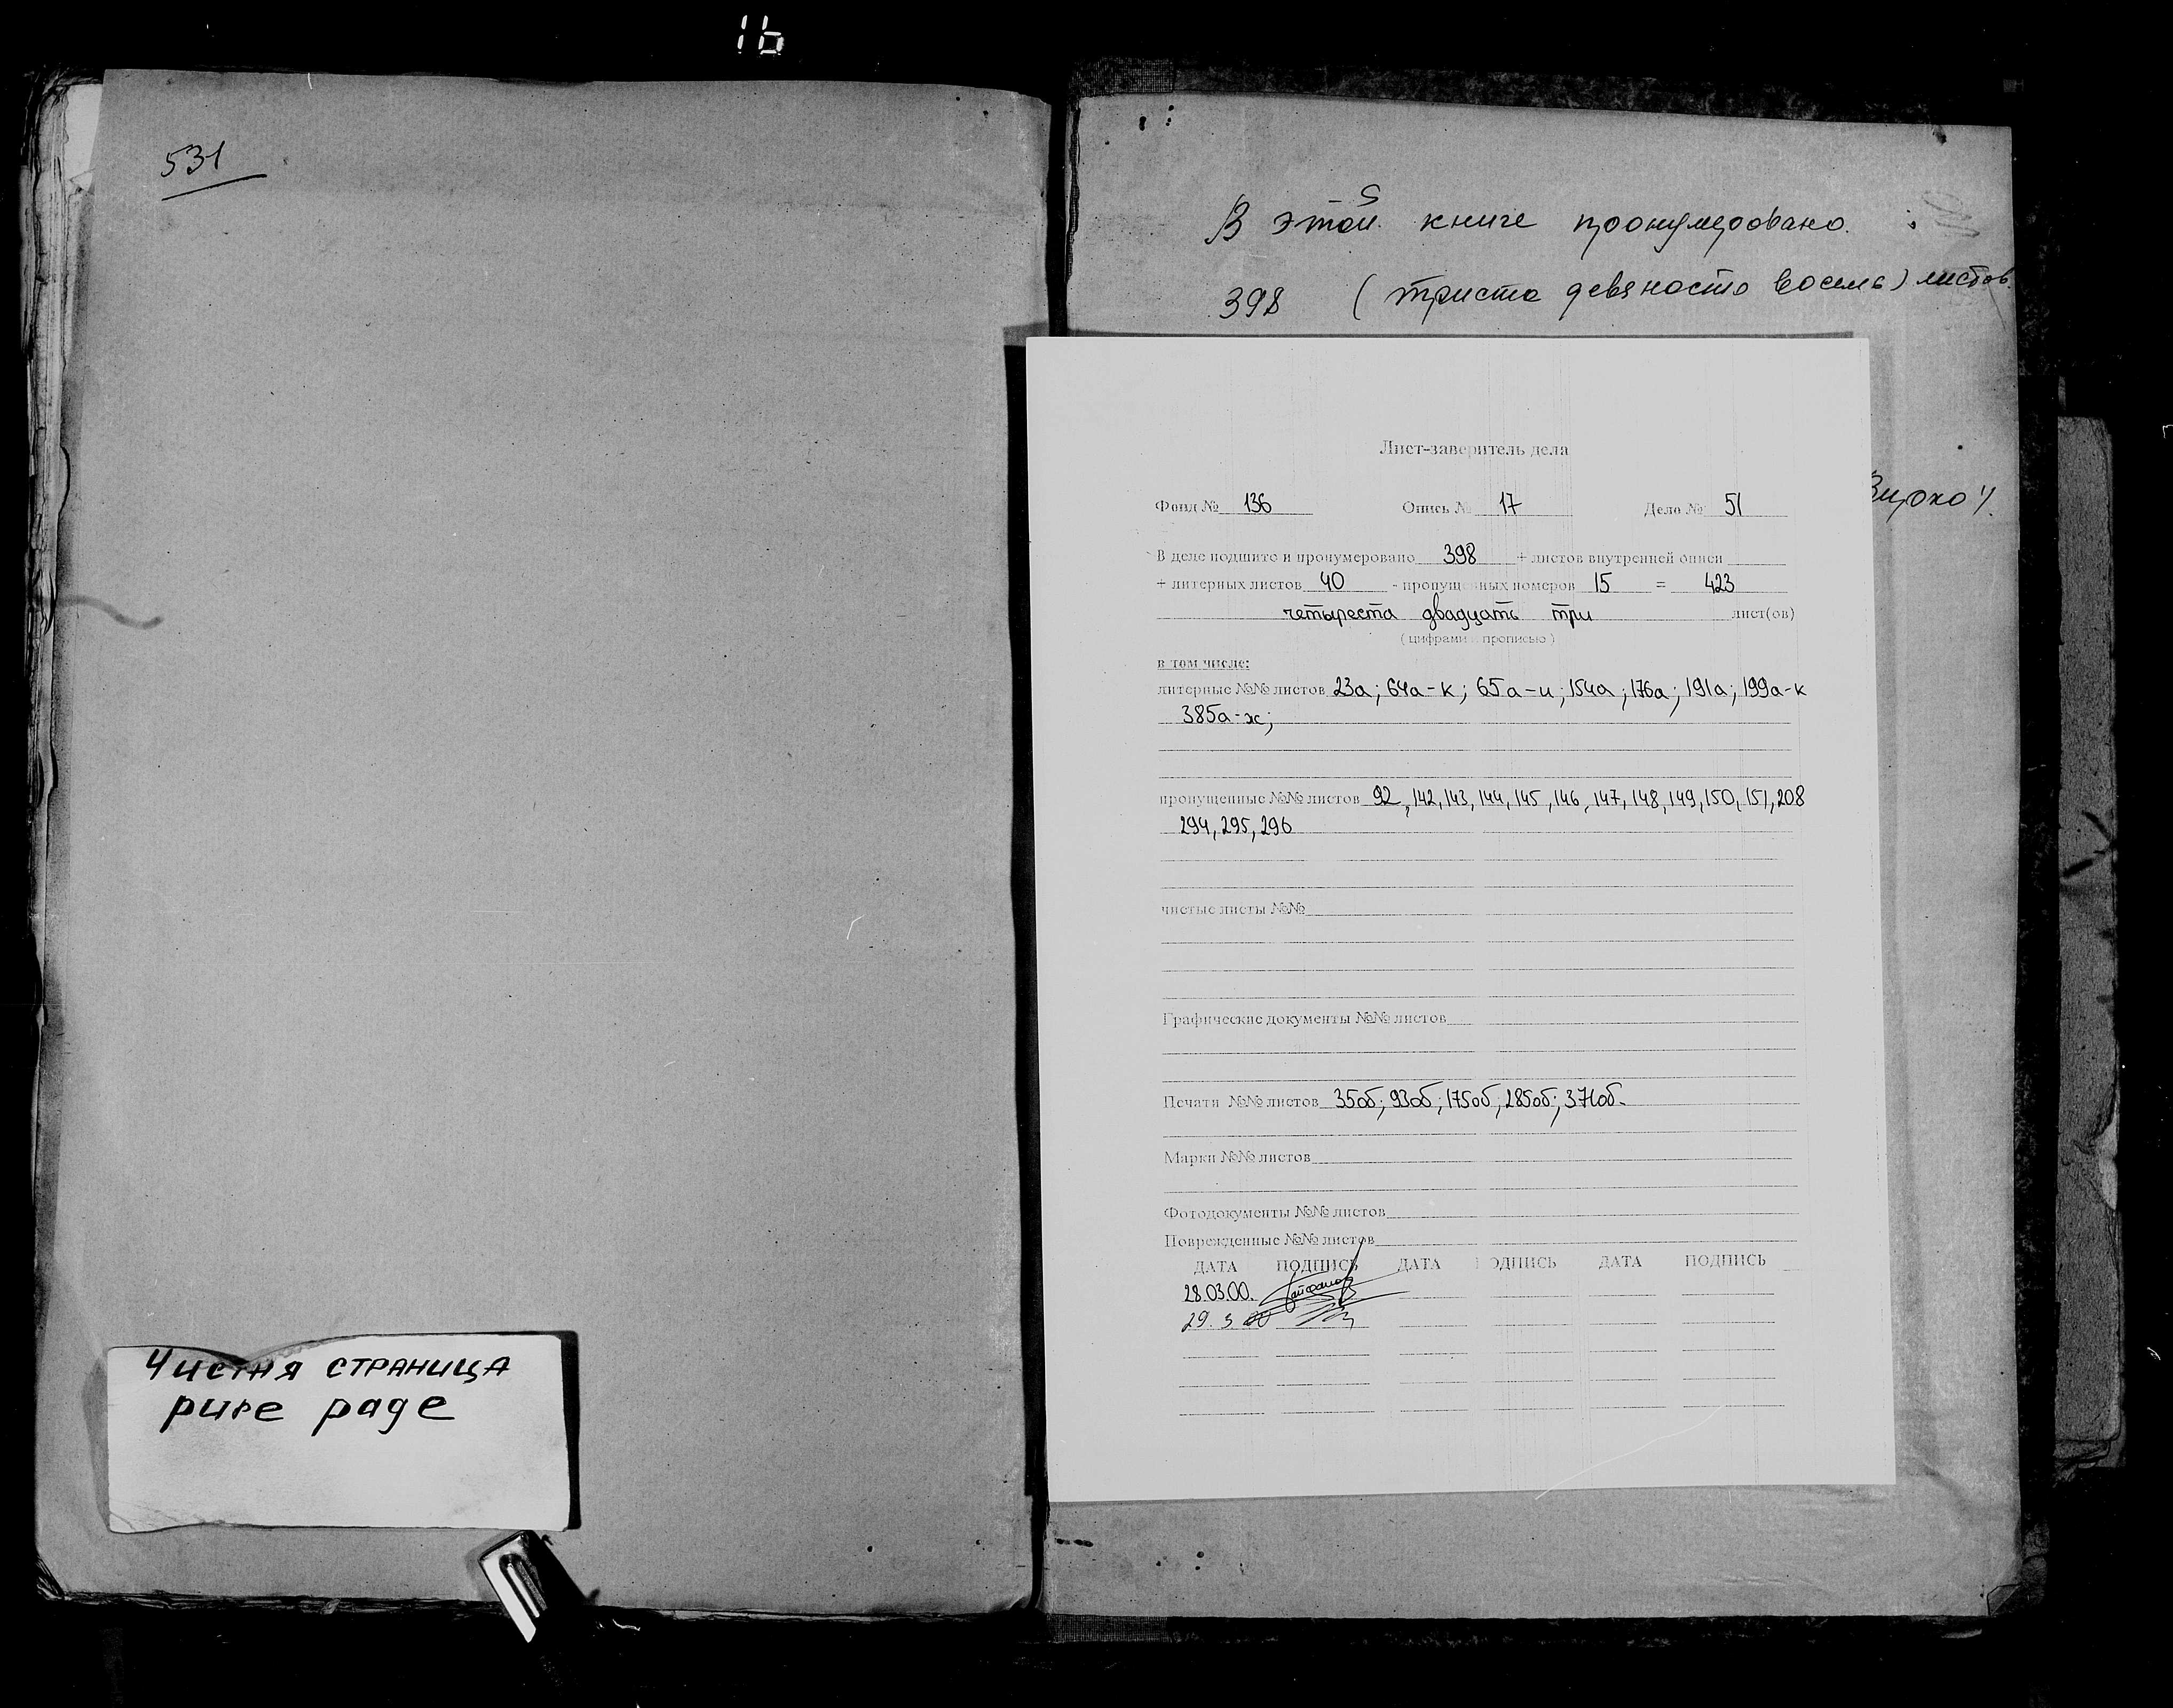 16
531
Чистая страница
pure page
В этой книге пронумеровано:
398 (триста девяносто восемь) листов.
Лист-заверитель дела
Фонд № 136 Опись № 17 Дело № 51
В деле подшито и пронумеровано 398 + листов внутренней описи
+ литерных листов 40 - пропущенных номеров 15 = 423
четыреста двадцать три лист(ов)
(цифрами и прописью)
в том числе:
литерные №№ листов 23а; 64а-к; 65а-и; 154а; 176а; 191а; 199а-к
385а-ж;
пропущенные №№ листов 92, 142, 143, 144, 145, 146, 147, 148, 149, 150, 151, 208
294, 295, 296
чистые листы №№
Графические документы №№ листов
Печати №№ листов 35об; 93об; 175об; 285об; 371об.
Марки №№ листов
Фотодокументы №№ листов
Поврежденные №№ листов
ДАТА ПОДПИСЬ ДАТА ПОДПИСЬ ДАТА ПОДПИСЬ
28.03.00.
29.3.00